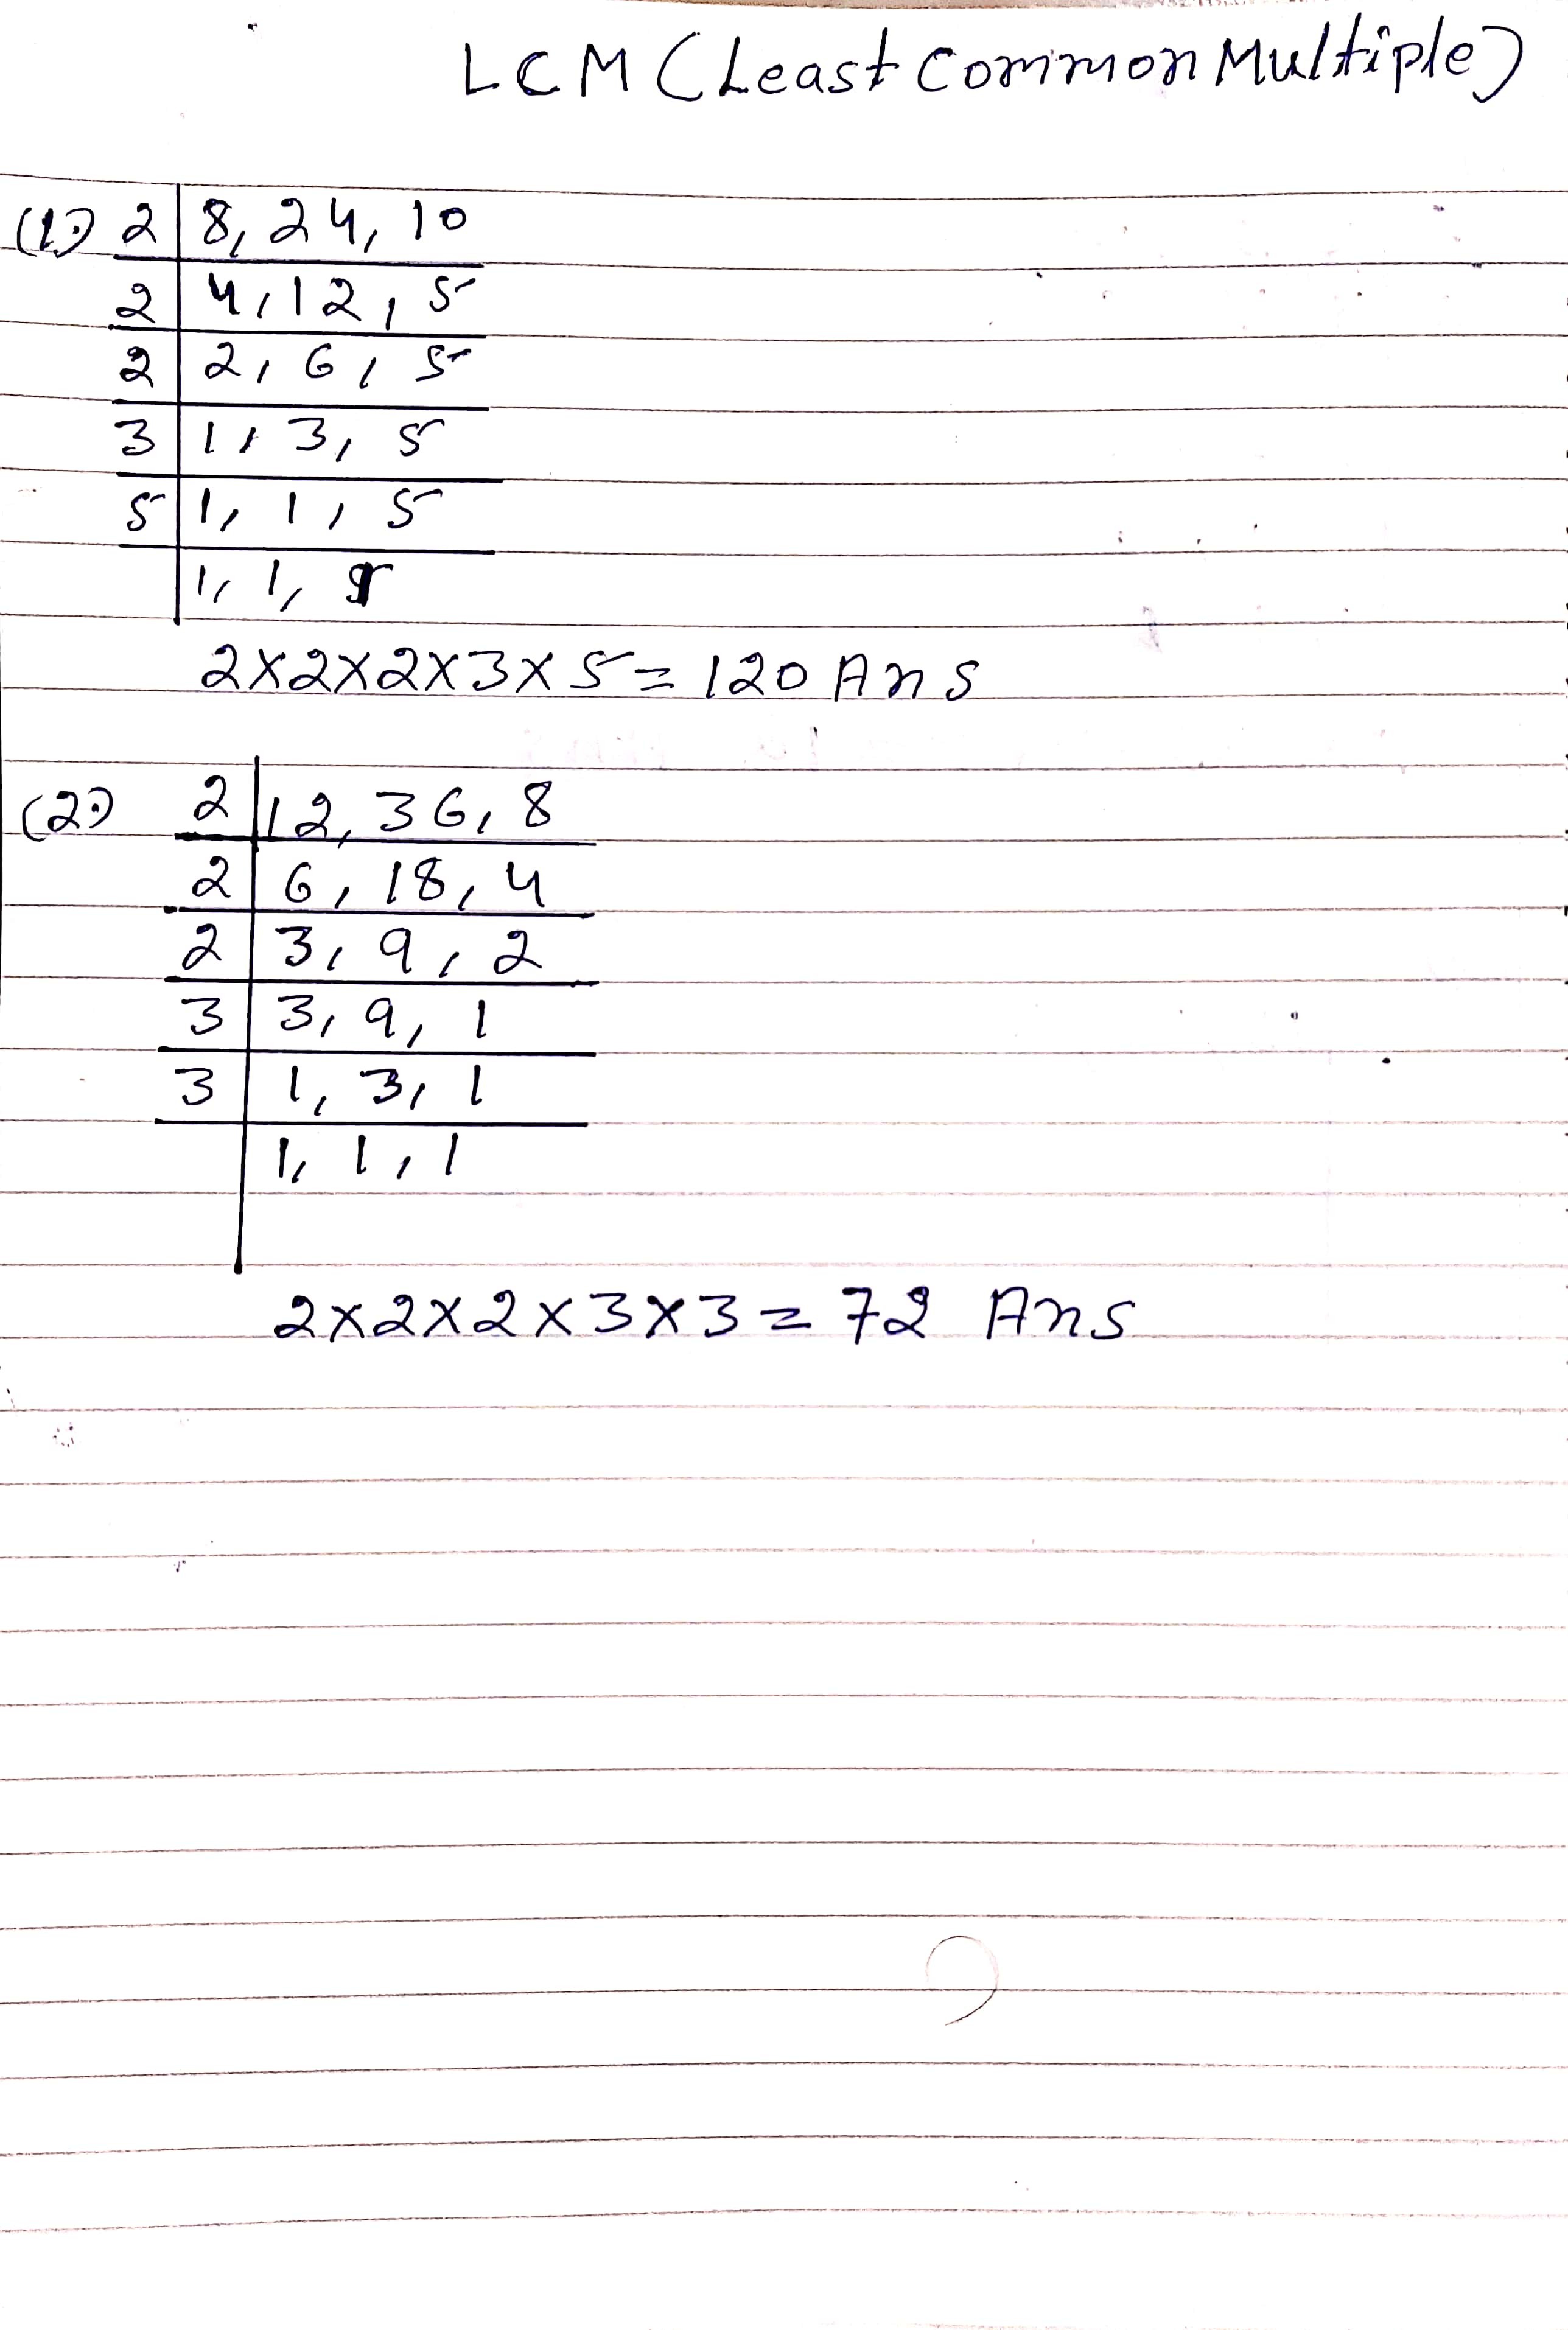 LCM (Least Common Multiple)
(1.) 2 | 8, 24, 10
2 | 4, 12, 5
2 | 2, 6, 5
3 | 1, 3, 5
5 | 1, 1, 5
1, 1, 1
2×2×2×3×5=120 Ans
(2.) 2 | 12, 36, 8
2 | 6, 18, 4
2 | 3, 9, 2
3 | 3, 9, 1
3 | 1, 3, 1
1, 1, 1
2×2×2×3×3=72 Ans